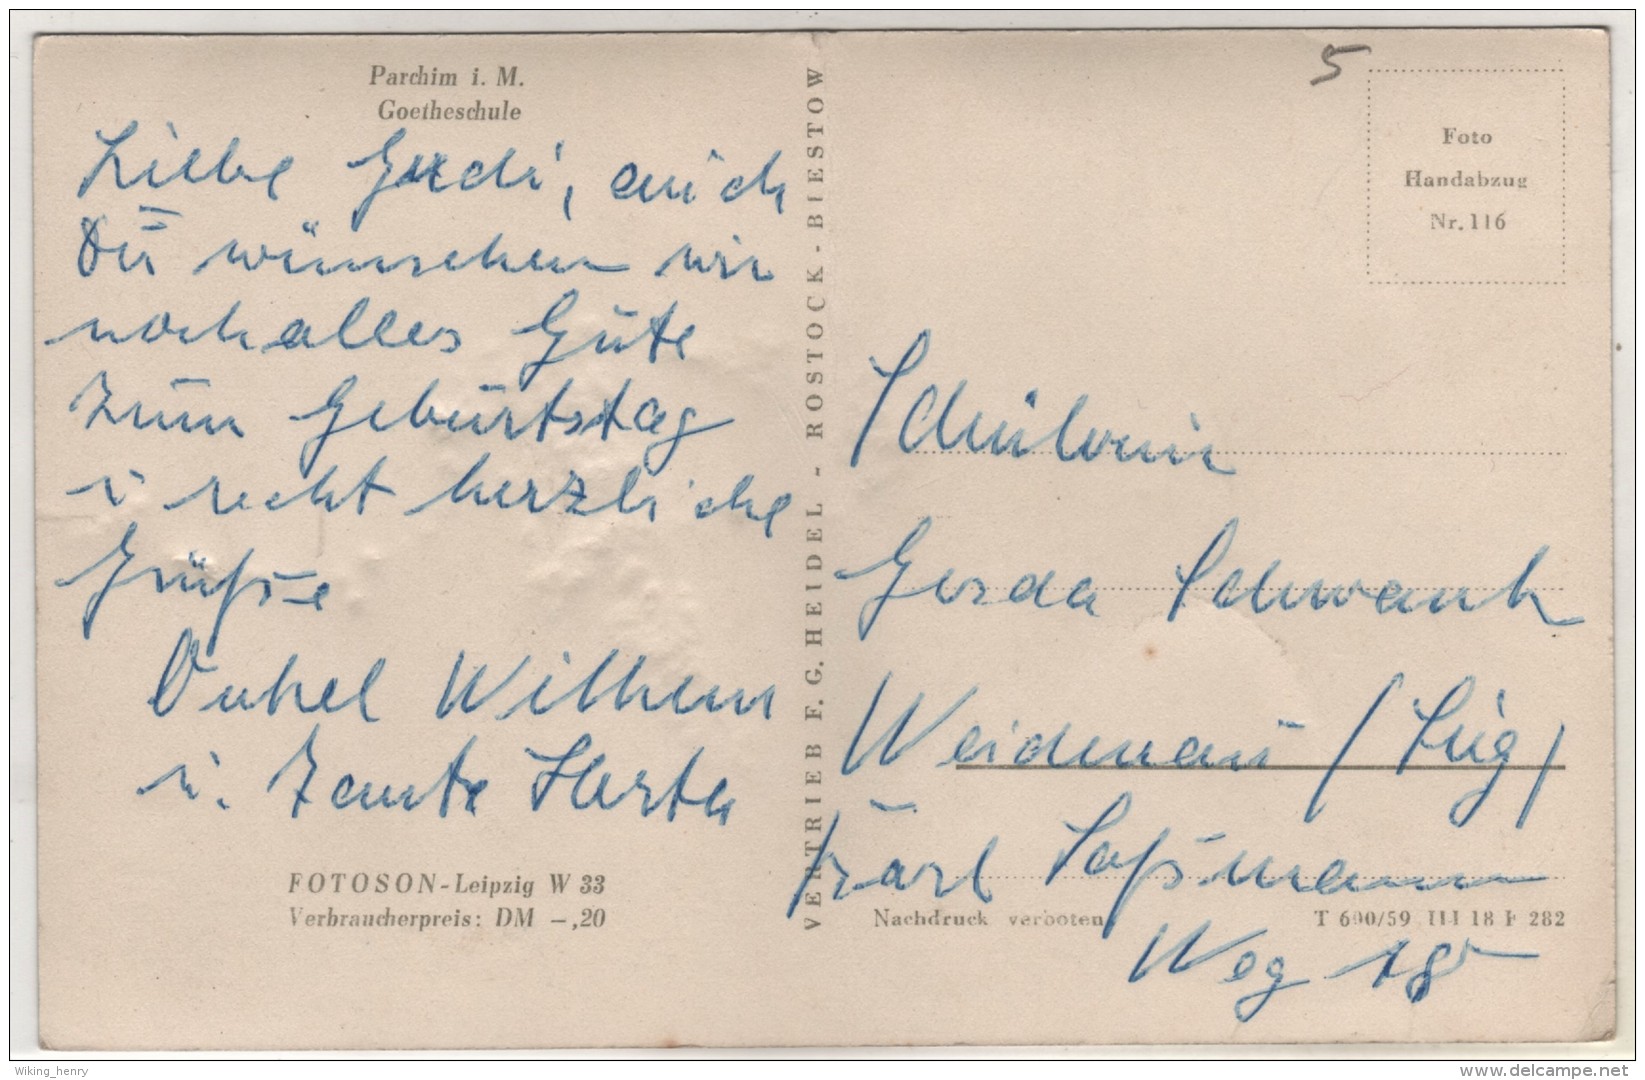 Parchim i. M.
Goetheschule
Liebe Gudi, auch
Dir wünschen wir
noch alles Gute
zum Geburtstag
u recht herzliche
Grüße
Onkel Wilhelm
u. Tante Herta
FOTOSON-Leipzig W 33
Verbraucherpreis: DM -,20
VERTRIEB F. G. HEIDEL - ROSTOCK - BIESTOW
5
Foto
Handabzug
Nr. 116
Schülerin
Gerda Schwank
Weidenau / Sieg /
Karl Saßmann
Weg 18
Nachdruck verboten
T 600/59 III 18 F 282
Wiking_henry
www.delcampe.net